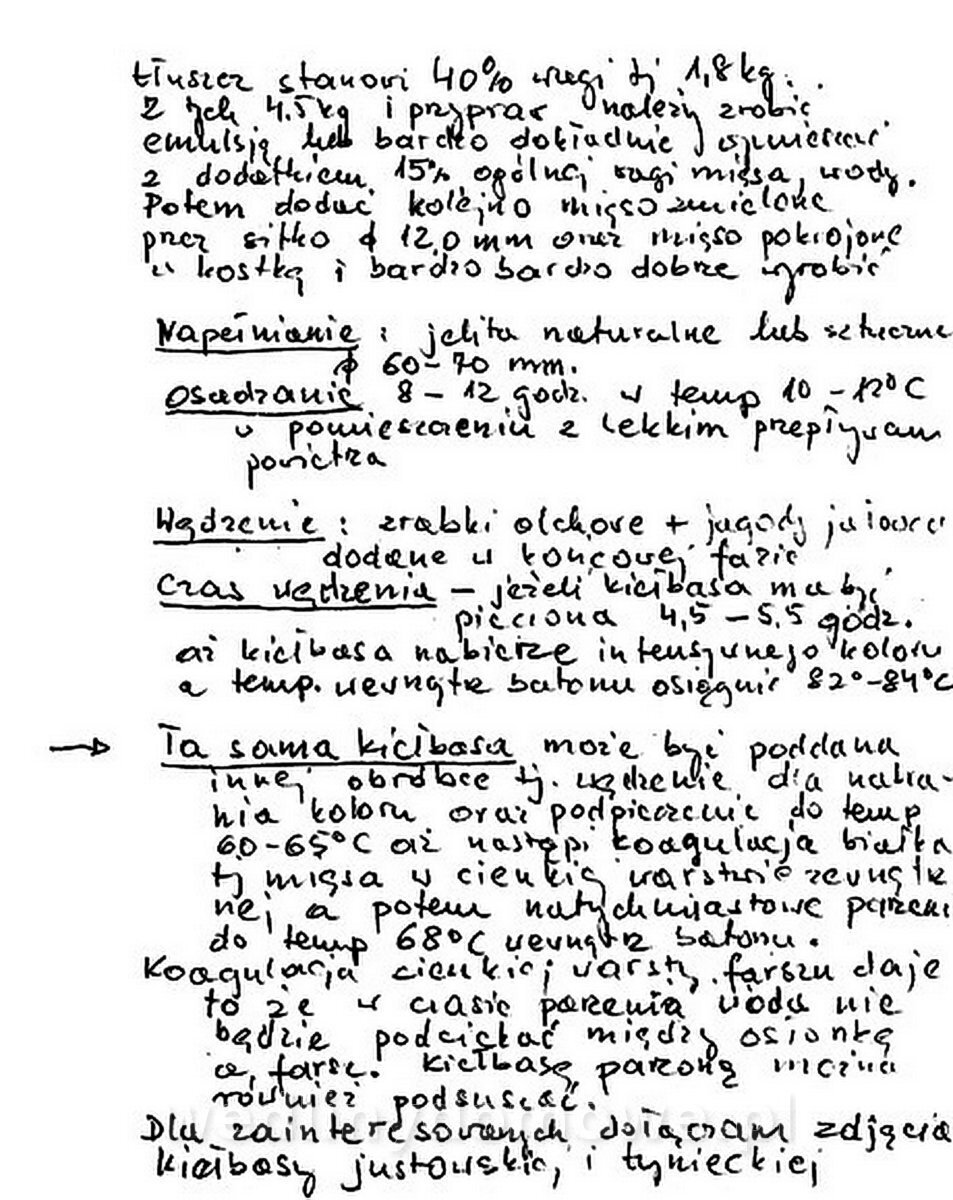 tłuszcz stanowi 40% wagi tj 1,8 kg.
Z tych 4.5 kg i przypraw należy zrobić
emulsję lub bardzo dokładnie wymieszać
z dodatkiem 15% ogólnej wagi mięsa, wody.
Potem dodać kolejno mięso zmielone
przez sitko ϕ 12,0 mm oraz mięso pokrojone
w kostkę i bardzo bardzo dobrze wyrobić
Napełnianie : jelita naturalne lub sztuczne
ϕ 60-70 mm.
Osadzanie 8-12 godz. w temp 10-12°C
w pomieszczeniu z lekkim przepływem
powietrza
Wędzenie : zrąbki olchowe + jagody jałowca
dodane w końcowej fazie
Czas wędzenia – jeżeli kiełbasa ma być
pieczona 4,5 – 5,5 godz.
aż kiełbasa nabierze intensywnego koloru
a temp. wewnątrz batonu osiągnie 82°-84°C
→ Ta sama kiełbasa może być poddana
innej obróbce tj. wędzenie dla nabra-
nia koloru oraz podpieczenie do temp
60-65°C aż nastąpi koagulacja białka
tj mięsa w cienkiej warstwie zewnętrz
nej a potem natychmiastowe parzeni
do temp 68°C wewnątrz batonu.
Koagulacja cienkiej warstwy farszu daje
to że w czasie parzenia woda nie
będzie podciekać między osłonką
a farsz. Kiełbasę parzoną można
również podsuszać.
Dla zainteresowanych dołączam zdjęcia
kiełbasy justowskiej i tynieckiej